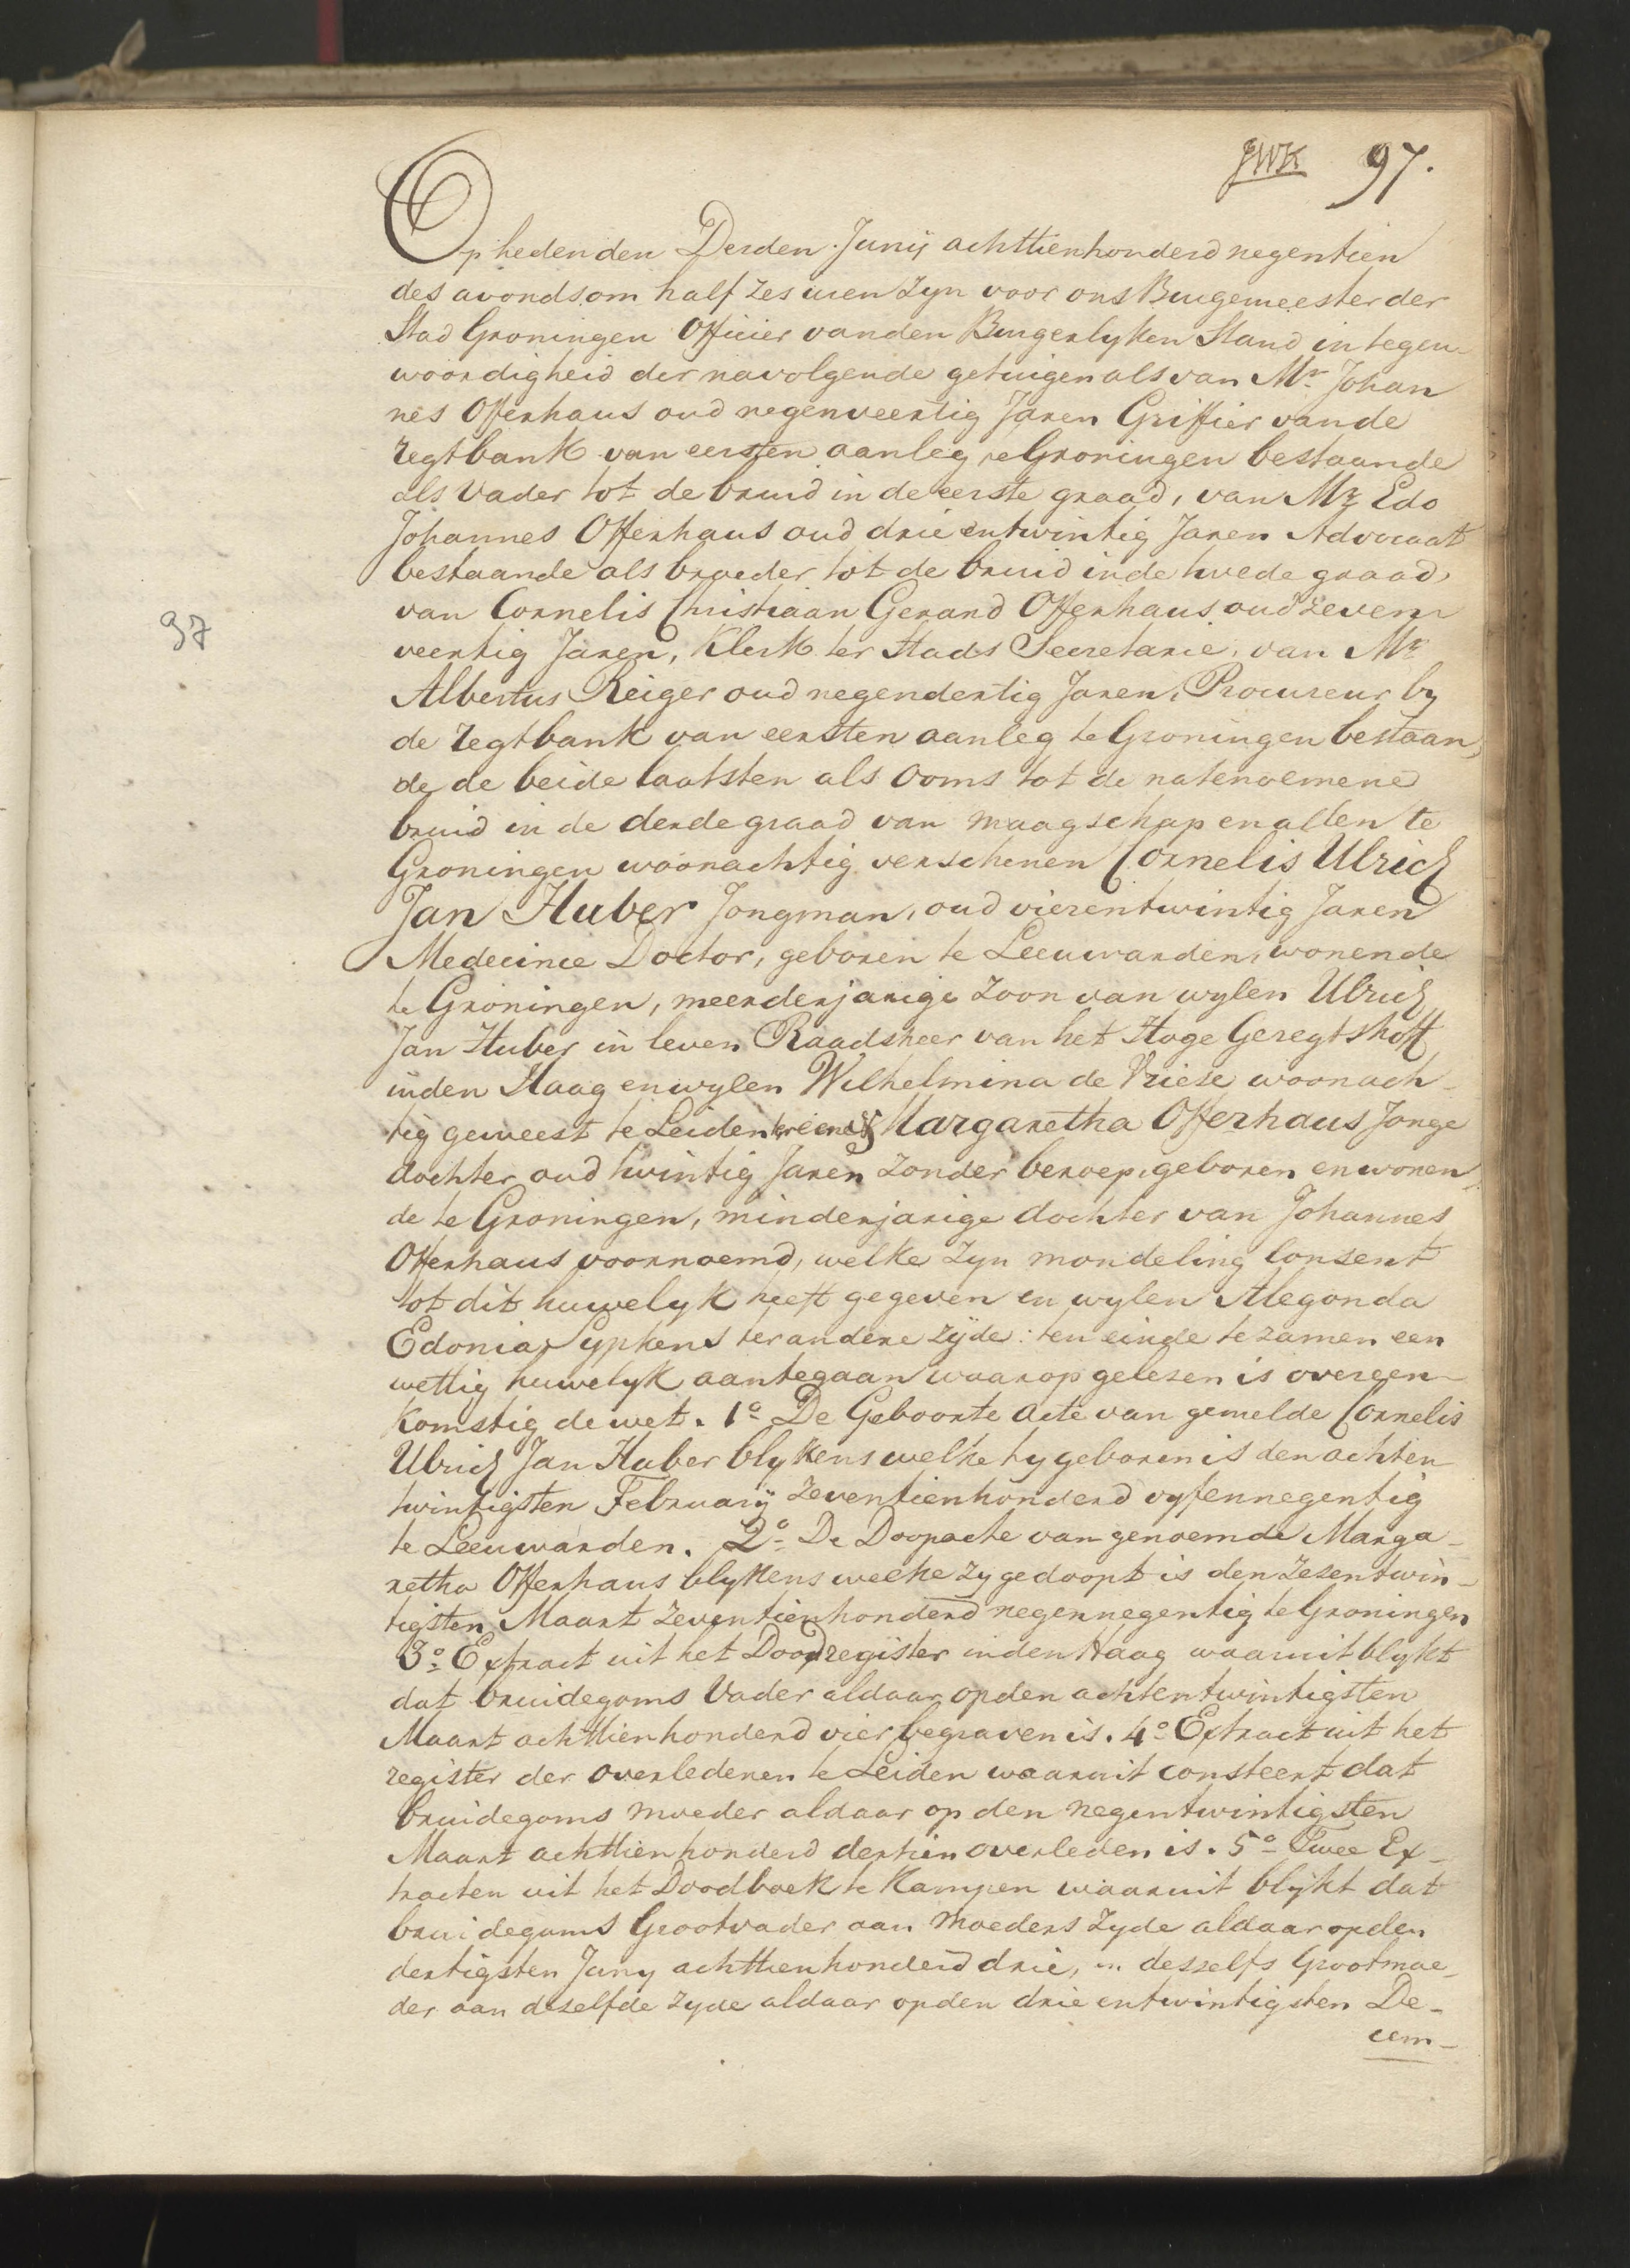 JWK 97.
Op heden den Derden Junij achttienhonderd negentien
des avonds om half zes uren zyn voor ons Burgemeester der
Stad Groningen Officier van den Burgerlyken Stand in tegen-
woordigheid der navolgende getuigen als van Mr. Johan
nes Offerhaus oud negenveertig Jaren Griffier van de
regtbank van eersten aanleg te Groningen bestaande
als Vader tot de bruid in de eerste graad, van Mr. Edo
Johannes Offerhaus oud drie entwintig Jaren Advocaat
bestaande als broeder tot de bruid in de twede graad,
van Cornelis Christiaan Gerard Offerhaus oud zeven
97
veertig Jaren, Klerk ter Stads Secretarie, van Mr.
Albertus Reiger oud negendertig Jaren, Procureur by
de regtbank van eersten aanleg te Groningen bestaan,
de de beide laatsten als Ooms tot de natenoemene
bruid in de derde graad van maagschap en allen te
Groningen woonachtig verschenen Cornelis Ulrich
Jan Huber Jongman, oud vierentwintig Jaren
Medecinae Doctor, geboren te Leeuwarden, wonende
te Groningen, meerderjarige zoon van wylen Ulrich
Jan Huber in leven Raadsheer van het Hoge Geregtshoff
in den Haag en wylen Wilhelmina de Vriese woonach-
tig geweest te Leiden ter eene & Margaretha Offerhaus Jonge
dochter oud twintig Jaren zonder beroep, geboren en wonen,
de te Groningen, minderjarige dochter van Johannes
Offerhaus voornoemd, welke zyn mondeling consent
tot dit huwelyk heeft gegeven en wylen Alegonda
Edonia Sypkens ter andere zijde: ten einde te zamen een
wettig huwelyk aantegaan waarop gelesen is overeen-
komstig de wet. 1o. De Geboorte acte van gemelde Cornelis
Ulrich Jan Huber blykens welke hy geboren is den achten
twintigsten February zeventienhonderd vyfennegentig
te Leeuwarden. 2o. De Doopacte van genoemde Marga-
retha Offerhaus blykens welke zy gedoopt is den zesentwin-
tigsten Maart zeventienhonderd negennegentig te Groningen
3o. Extract uit het Doodregister in den Haag waaruit blykt
dat bruidegoms Vader aldaar op den achtentwintigsten
Maart achttienhonderd vier begraven is. 4o. Extract uit het
register der overledenen te Leiden waaruit consteert dat
bruidegoms moeder aldaar op den negentwintigsten
Maart achttienhonderd dertien overleden is. 5o. Twee Ex-
tracten uit het Doodboek te Kampen waaruit blijkt dat
bruidegoms Grootvader aan moeders zyde aldaar op den
dertigsten Juny achttienhonderd drie, en desselfs Grootmoe-
der aan deselfde zyde aldaar op den drie entwintigsten De-
cem-